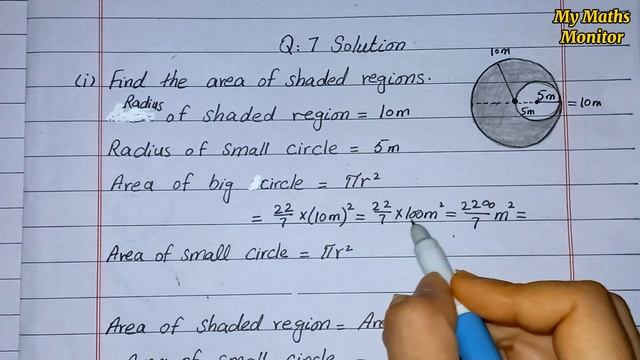 My Maths
Monitor
Q: 7 Solution
10m
(i) Find the area of shaded regions.
Radius of shaded region = 10m
5m
5m
= 10m
Radius of small circle = 5m
Area of big circle = πr²
= 22/7 × (10m)² = 22/7 × 100m² = 2200/7 m² =
Area of small circle = πr²
Area of shaded region =
Area of small circle =